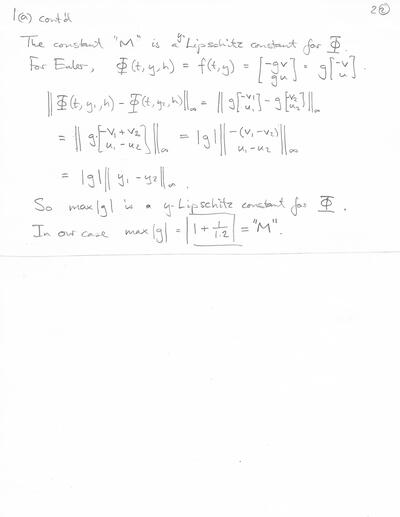 1(a) cont'd
2②
The constant "M" is a y-Lipschitz constant for Φ.
For Euler, Φ(t,y,h) = f(t,y) = [-gv gu] = g[-v u].
‖Φ(t,y₁,h) - Φ(t,y₂,h)‖∞ = ‖g[-v₁ u₁] - g[-v₂ u₂]‖∞
= ‖g[-v₁+v₂ u₁-u₂]‖∞ = |g| ‖-(v₁-v₂) u₁-u₂‖∞
= |g| ‖y₁-y₂‖∞.
So max|g| is a y-Lipschitz constant for Φ.
In our case max|g| = 1 + 1/1.2 = "M".